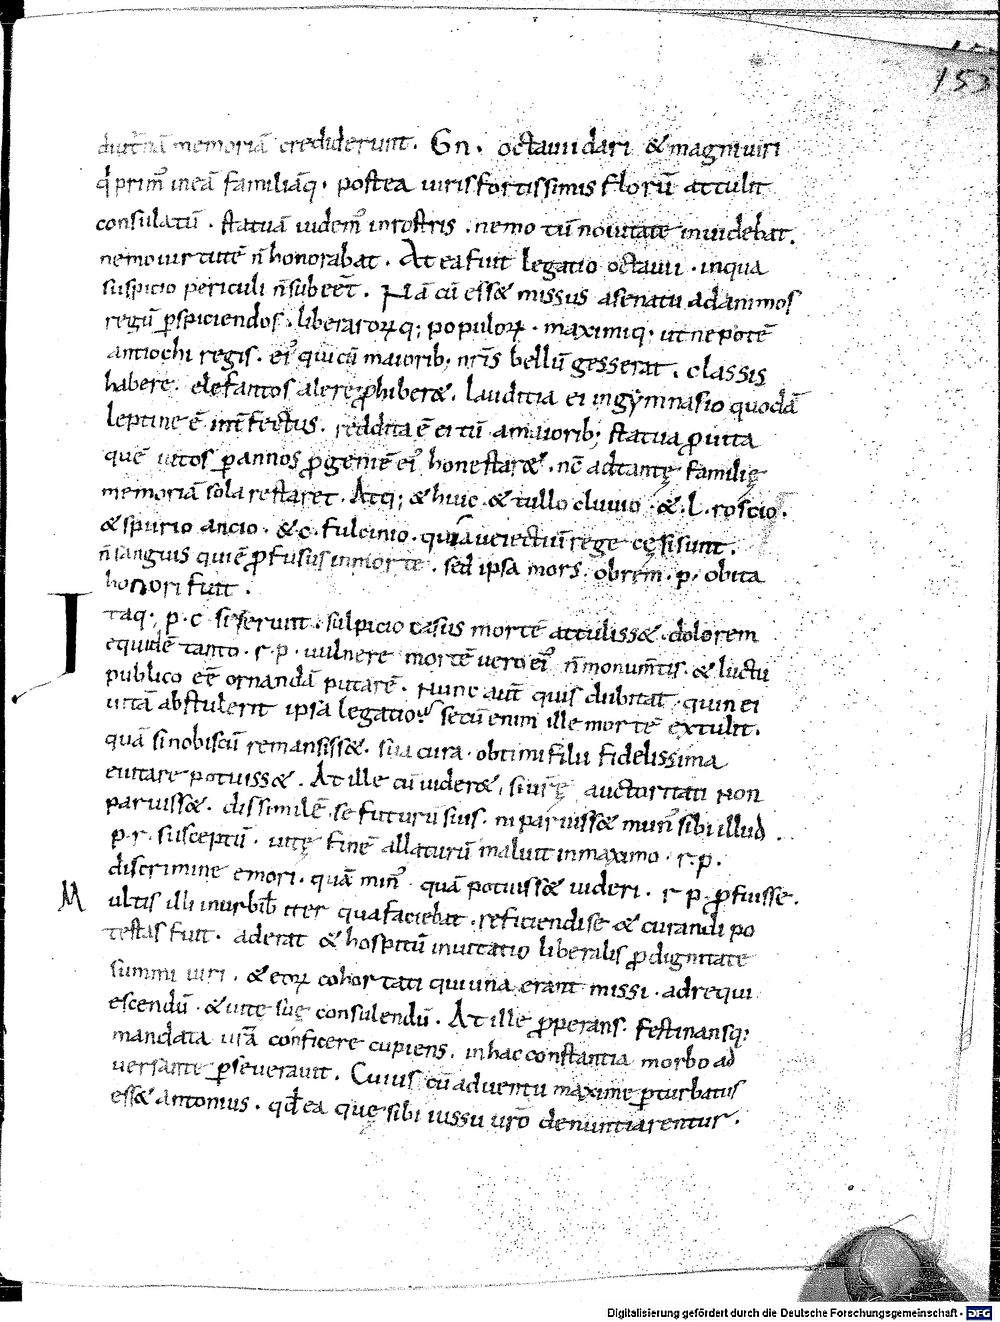 153
diut̄nā memoriā crediderunt. Gn. octauii clari & magni uiri
q̇ prim᾽ ineā familiāq. postea uiris fortissimis florū attulit
consulatū. statuā uidem᾽ inrostris. nemo tū nouitate inuidebat.
nemo uirtutē n̄ honorabat. At ea fuit legatio octauii. inqua
suspicio periculi n̄ subeēt. Nā cū ess& missus asenatu ad animos
regū ꝑspiciendos. liberarorꝝq; populorꝝ. maximiq; ut nepotē
antiochi regis. ei᾽ qui cū maiorib; nr̄is bellū gesserat. classis
habere. elefantos alere ꝓhiber&. laudicia ei in gymnasio quodā
leptine ē int̄fectus. reddita ē ei tū amaiorib; statua ꝓ uita
quē m̄tos ꝑ annos ꝓgeniē ei᾽ honestar&. nc̄ ad tantę familię
memoriā sola restaret. Atq; & huic. & tullo cluuio. & L. roscio.
& spurio ancio. & c. fulcinio. qui a ueientiū rege cęsi sunt.
n̄ sanguis qui ē ꝓfusus in morte. sed ipsa mors. ob rem. p. obita
honori fuit.
I taq;. p. c. si ser uiit. sulpicio casus mortē attuliss&. dolorem
equidē tanto. r. p. uulnere mortē uero ei᾽ n̄ monum̄tis. & luctu
publico eē ornandā putarē. Nunc aut̄ quis dubitat. quin ei
uitā abstulerit ipsa legatio secū enim ille mortē extulit.
quā si nobiscū remansiss&. sua cura. obtimi filii fidelissima
euitare potuiss&. At ille cū uider&, si ur̄ę auctoritati Non
paruiss&. dissimilē se futurū sui. si paruiss& mun᾽ sibi illud.
p. r. susceptū. uitę finē allaturū maluit in maximo. r. p.
discrimine emori. quā min᾽ quā potuiss& uideri. r. p. ꝓfuisse.
M ultis illi in urbib᾽ iter qua faciebat. reficiendi se & curandi po
testas fuit. aderat & hospitū inuitatio liberalis ꝓ dignitate
summi uiri. & eorꝝ cohortati qui una erant missi. ad requi
escendū. & uitę suę consulendū. At ille ꝓperans. festinansq;
mandata ur̄a conficere cupiens. in hac constantia morbo ad
uersante ꝑseuerauit. Cuius cū aduentu maxime ꝑturbatus
ess& antonius. qđ ea quę sibi iussu ur̄o denuntiarentur.
Digitalisierung gefördert durch die Deutsche Forschungsgemeinschaft - DFG